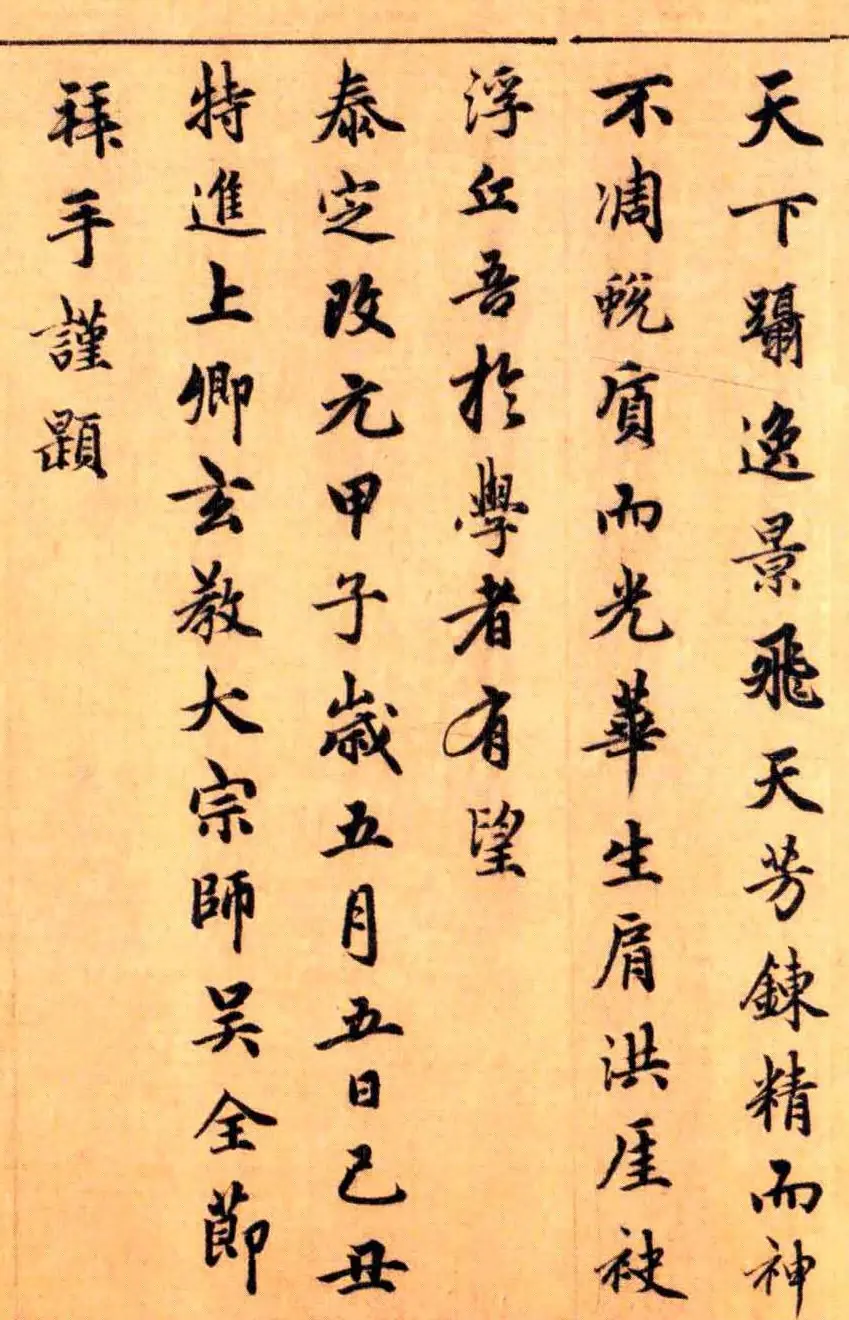 天下躡逸景飛天芳鍊精而神
不凋蛻質而光華生肩洪厓袂
浮丘吾於學者有望
泰定改元甲子歲五月五日己丑
特進上卿玄教大宗師吳全節
拜手謹題